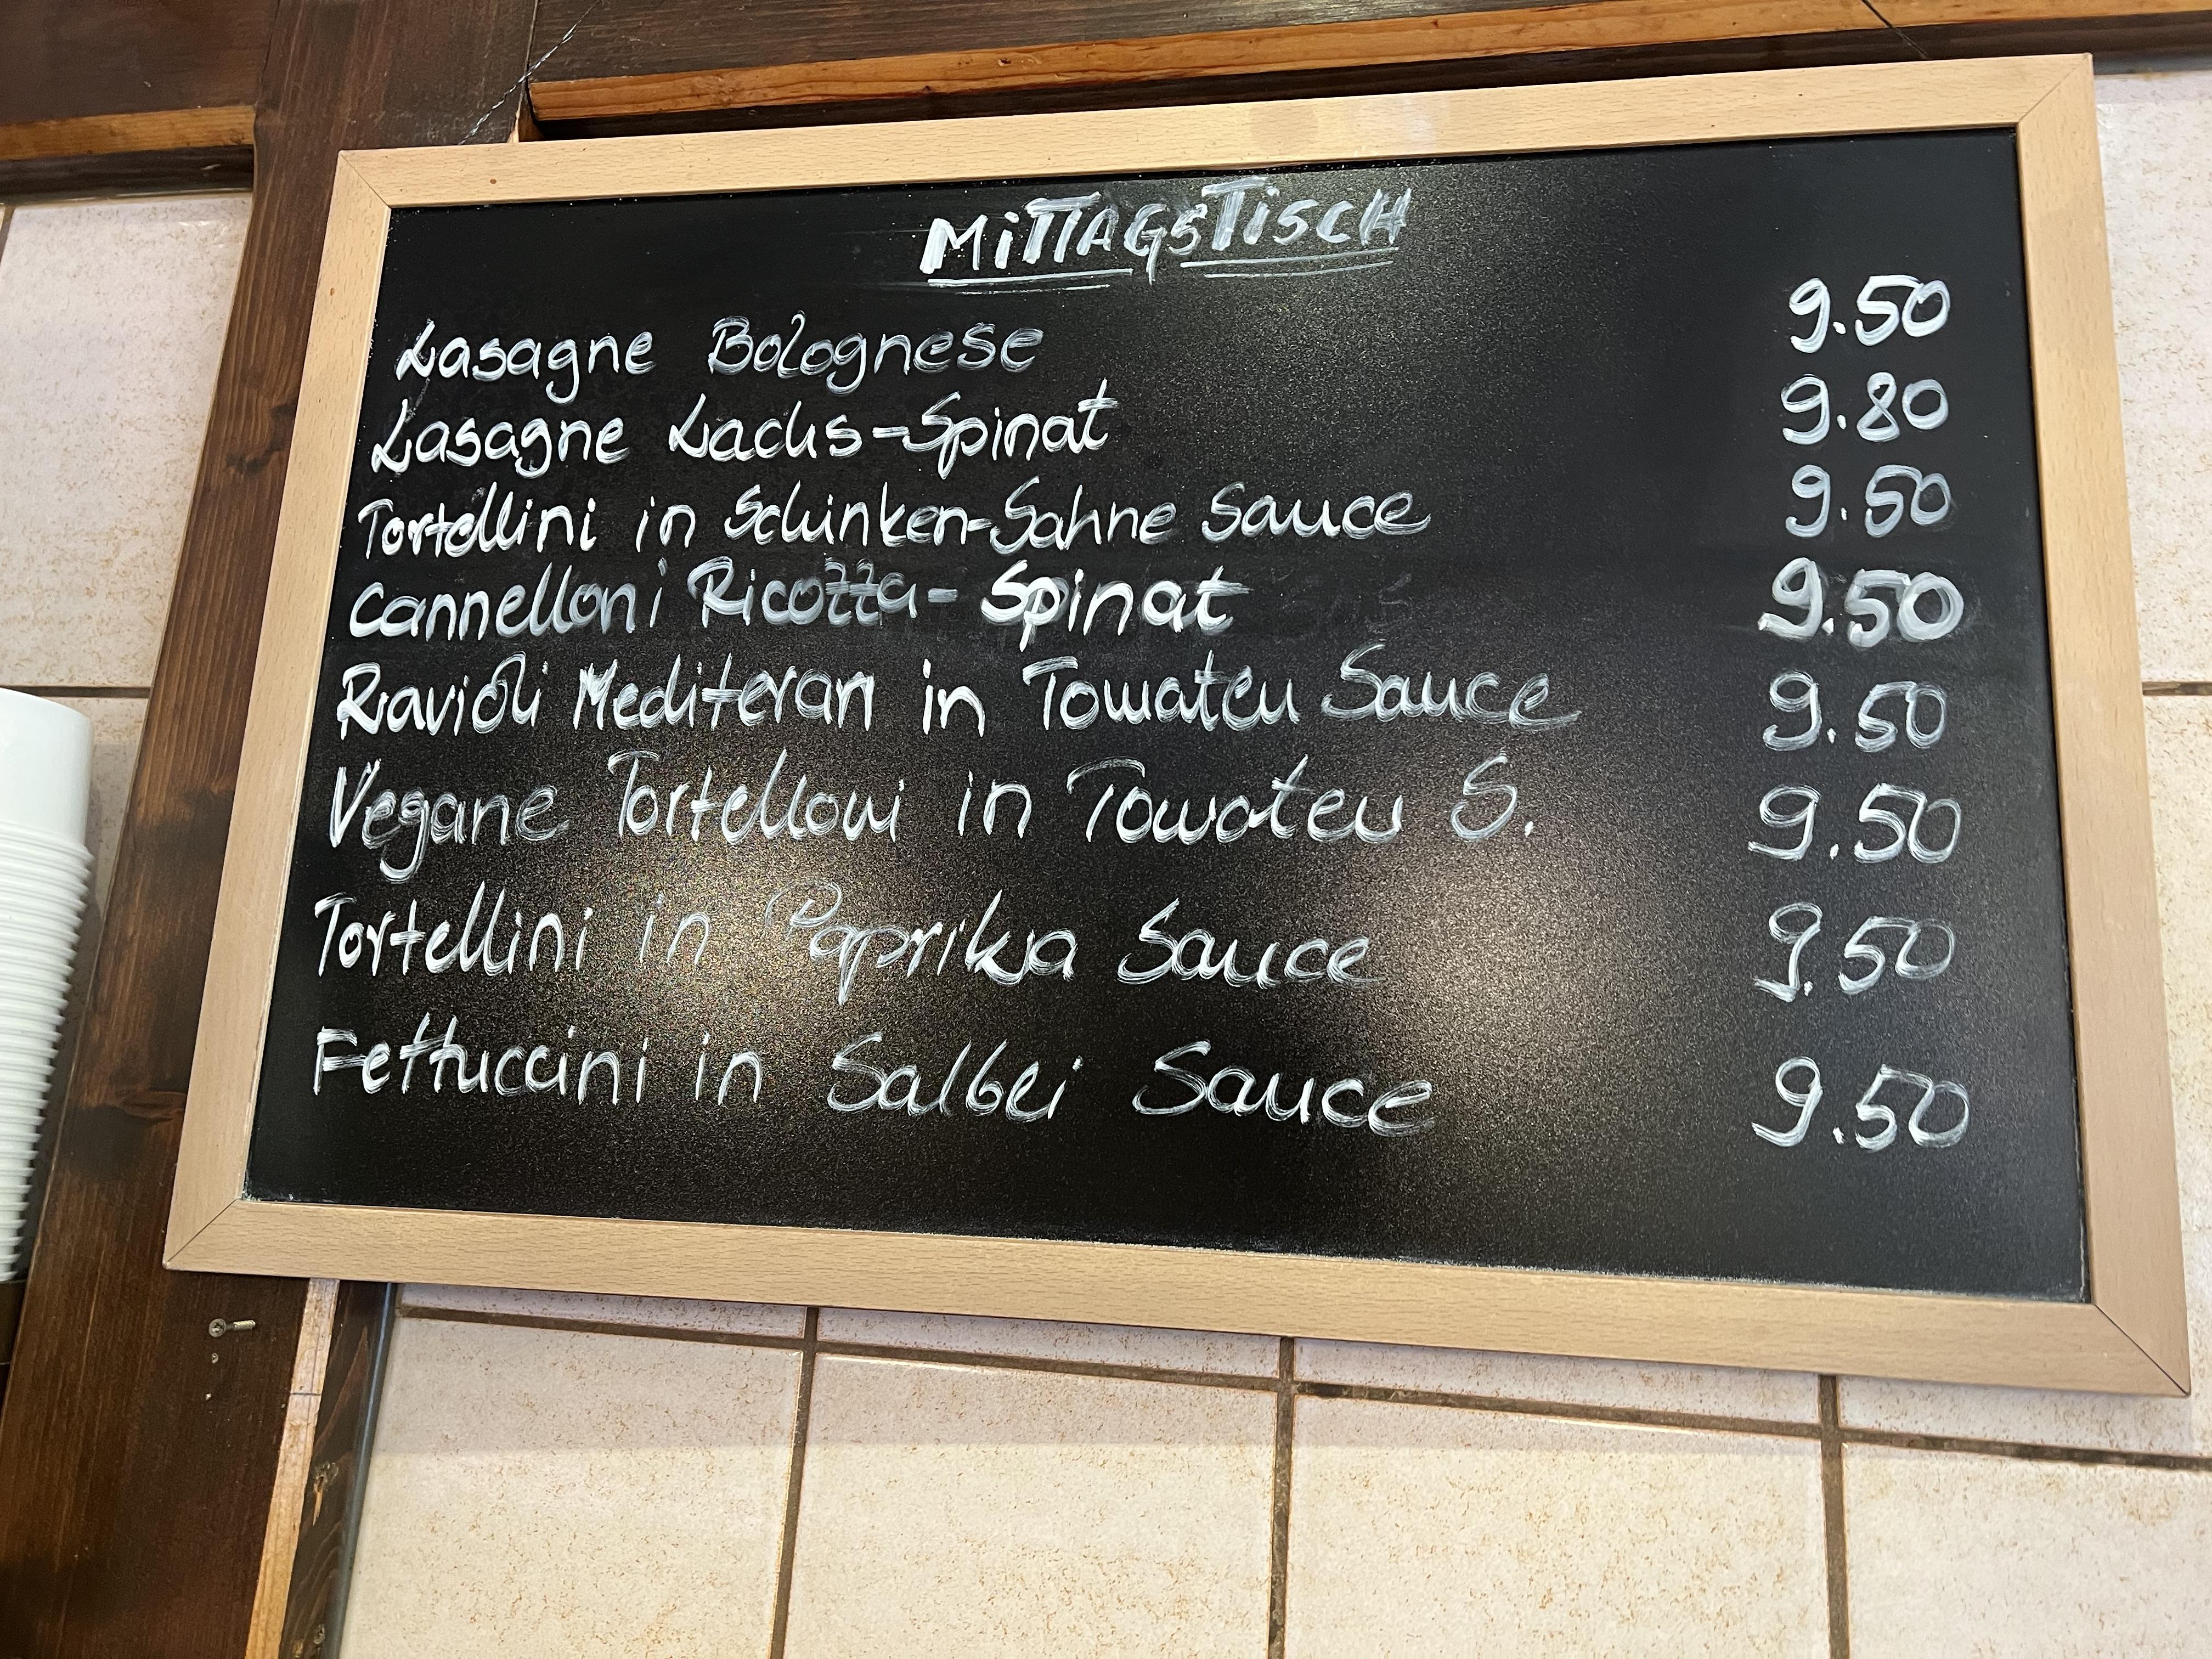 MITTAGSTISCH
Lasagne Bolognese 9.50
Lasagne Lachs-Spinat 9.80
Tortellini in Schinken-Sahne Sauce 9.50
Cannelloni Ricotta-Spinat 9.50
Ravioli Mediteran in Tomaten Sauce 9.50
Vegane Tortelloni in Tomaten S. 9.50
Tortellini in Paprika Sauce 9.50
Fettuccini in Salbei Sauce 9.50